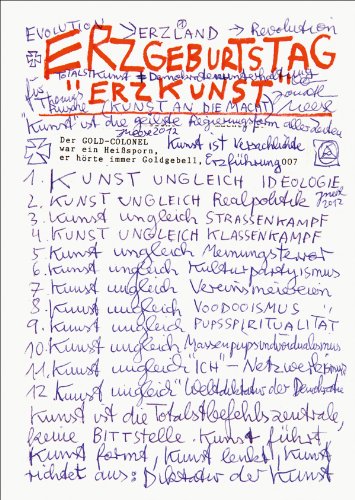 EVOLUTION > ERZLAND > Revolution
ERZGEBURTSTAG
TOTALSTKunst = Demokratenunterhaltung
"ERZKUNST"
für
(KUNST AN DIE MACHT)
"Kunst" ist die geilste Regierungsform aller Zeiten
Meese 2012
Der GOLD-COLONEL
war ein Heißsporn,
er hörte immer Goldgebell,
Kunst ist Verschlußte
Erzführung 007
1. KUNST UNGLEICH IDEOLOGIE
2. KUNST UNGLEICH Realpolitik
2012
3. Kunst ungleich STRASSENKAMPF
4. KUNST UNGLEICH KLASSENKAMPF
5. Kunst ungleich Meinungsterror
6. Kunst ungleich Kulturpartyismus
7. Kunst ungleich Vereinsmeiereien
8. Kunst ungleich VOODOOISMUS
9. Kunst ungleich PUPSSPIRITUALITÄT
10. Kunst ungleich Massenpupsindividualismus
11. Kunst ungleich "ICH" - Netzwerkerei
12 Kunst ungleich "Weltdiktatur der Demokratie
Kunst ist die Totalstbefehlszentrale,
keine BITTSTELLE. Kunst führt,
Kunst formt, Kunst lenkt, Kunst
richtet aus: Diktatur der Kunst